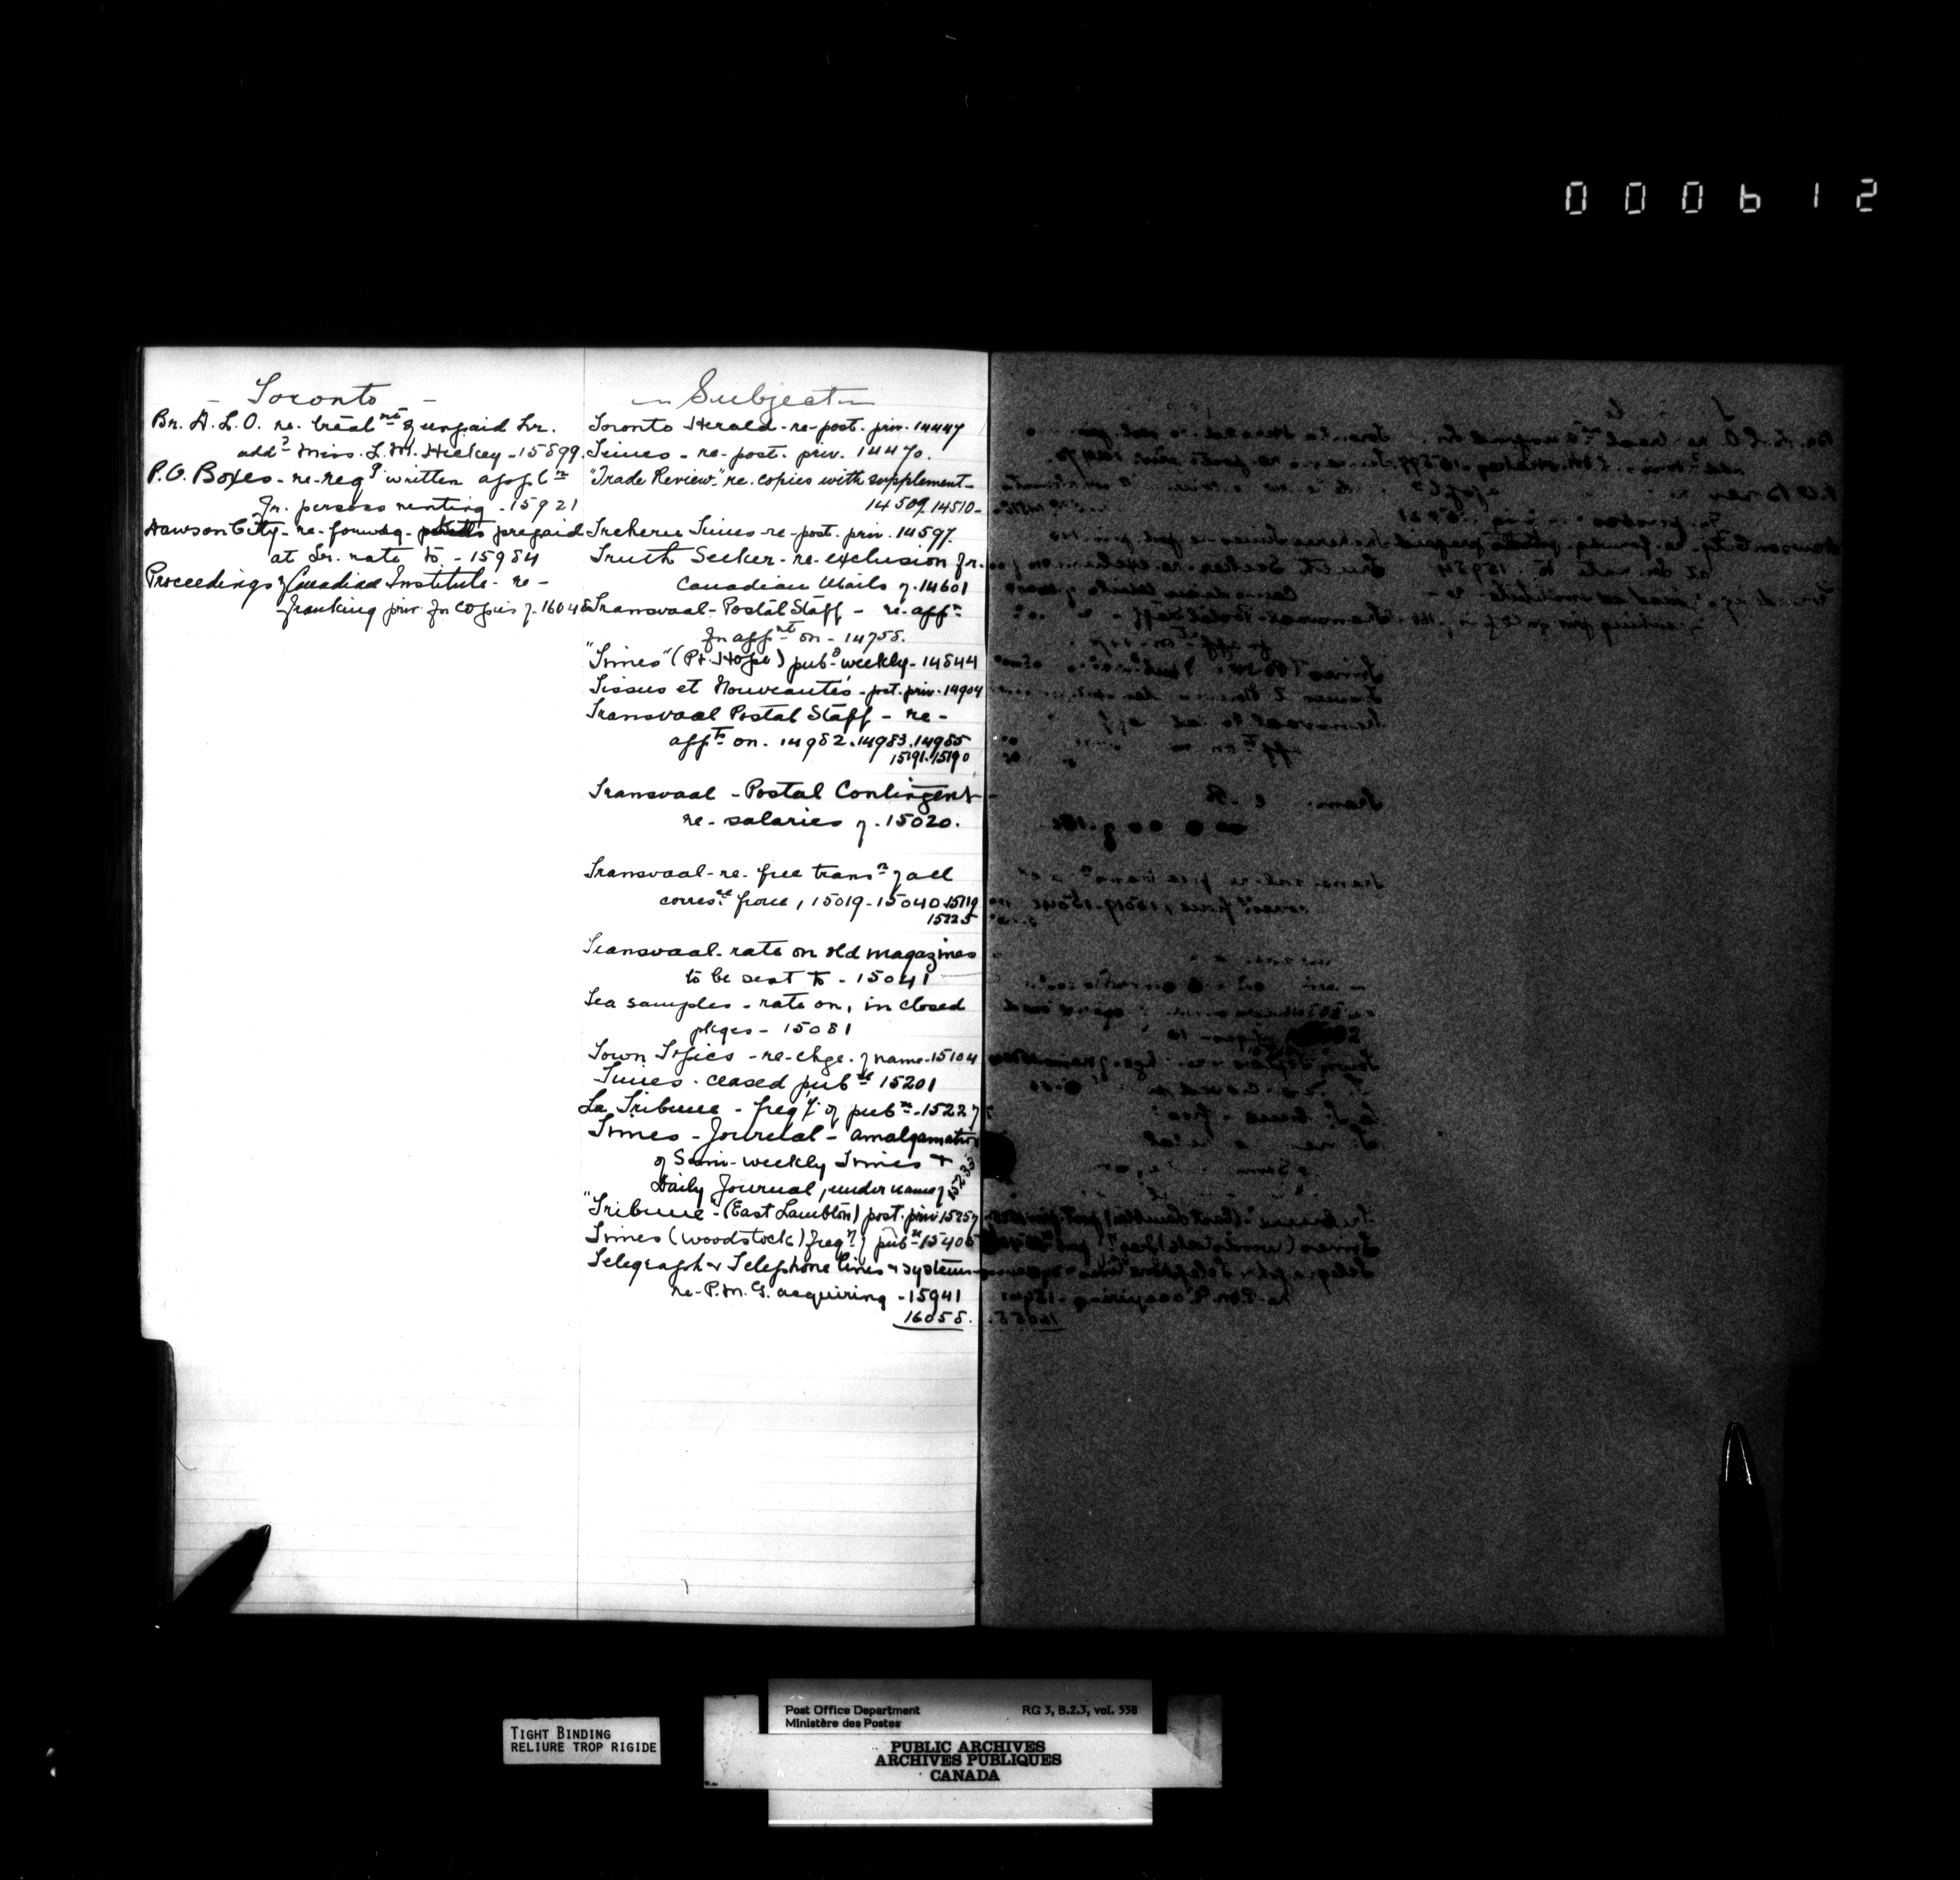 000612
- Toronto -
Br. D. L. O. re. treatnt of unpaid Lr.
addd Miss. L. M. Hickey - 15899.
P.O. Boxes - re- reqg written applcn
fr. persons renting - 15921
Dawson City - re- forwdg - prepaid
at Lr. rate to - 15984
Proceedings of Canadian Institute - re -
franking priv. for copies of - 16048
Subject
Toronto Herald - re- post. priv. 14447
Times - re- post. priv. 14470.
"Trade Review" re. copies with supplement -
14509. 14510 -
Treherne Times - re- post. priv. 14597.
Truth Seeker - re- exclusion fr.
Canadian Mails of. 14601
Transvaal - Postal Staff - re. appn
for appnt on - 14755.
"Times" (Pt. Hope) pubd weekly - 14844
Tissus et Nouveautés - post. priv. 14904
Transvaal Postal Staff - re -
appt on. 14982. 14983. 14985
15191. 15190
Transvaal - Postal Contingent -
re- salaries of. 15020.
Transvaal - re- free transn of all
corresce from, 15019 - 15040. 15119
15225
Transvaal - rate on old magazines
to be sent to - 15041
Tea samples - rate on, in closed
pkges - 15081
Town Topics - re- chge. of name - 15104
Times - ceased pubn 15201
La Tribune - freqy of pubn - 15227
Times - Journal - amalgamation
of Semi-weekly Times &
Daily Journal, under name of 15233
"Tribune" (East Lambton) post. priv 15257
Times (Woodstock) freqy of pubn 15405
Telegraph & Telephone lines & systems
re- P.M.G. acquiring - 15941
16058.
TIGHT BINDING
RELIURE TROP RIGIDE
Post Office Department RG 3, B.2.3, vol. 558
Ministère des Postes
PUBLIC ARCHIVES
ARCHIVES PUBLIQUES
CANADA